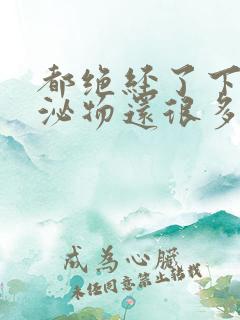 都绝经了下
泌物还很多
成为心臟
未经同意禁止转载